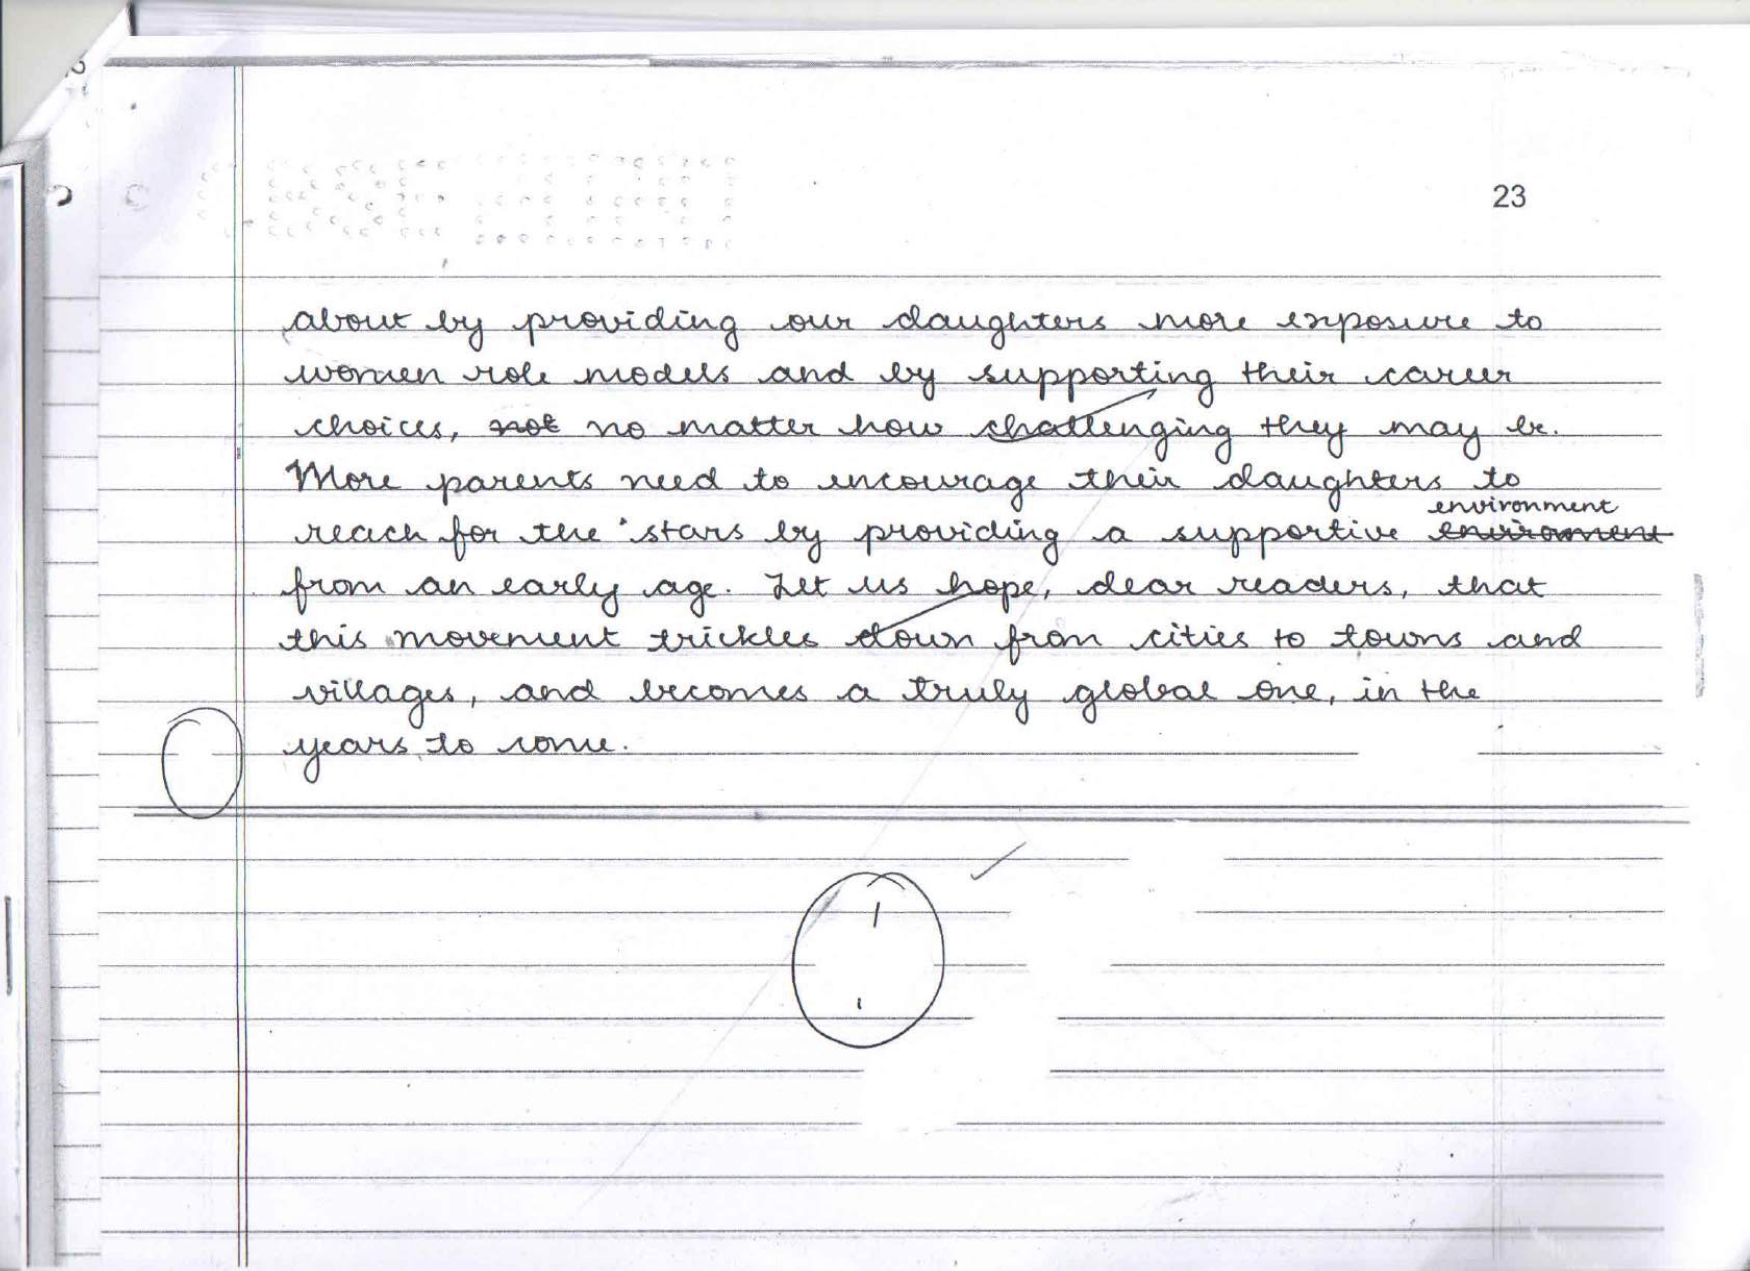 23
about by providing our daughters more exposure to
women role models and by supporting their career
choices, not no matter how challenging they may be.
More parents need to encourage their daughters to
environment
reach for the stars by providing a supportive enviroment
from an early age. Let us hope, dear readers, that
this movement trickles down from cities to towns and
villages, and becomes a truly global one, in the
years to come.